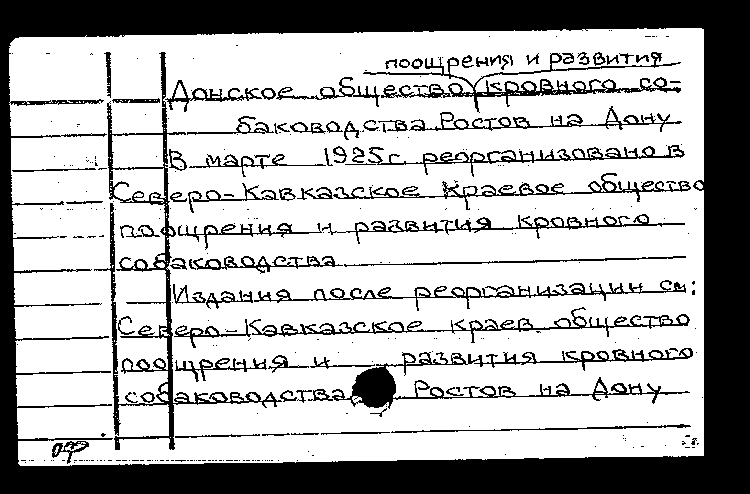 поощрения и развития
Донское общество кровного со-
баководства. Ростов на Дону
В марте 1925 г. реорганизовано в
Северо-Кавказское Краевое общество
поощрения и развития кровного
собаководства.
Издания после реорганизации см:
Северо-Кавказское краев. общество
поощрения и развития кровного
собаководства Ростов на Дону